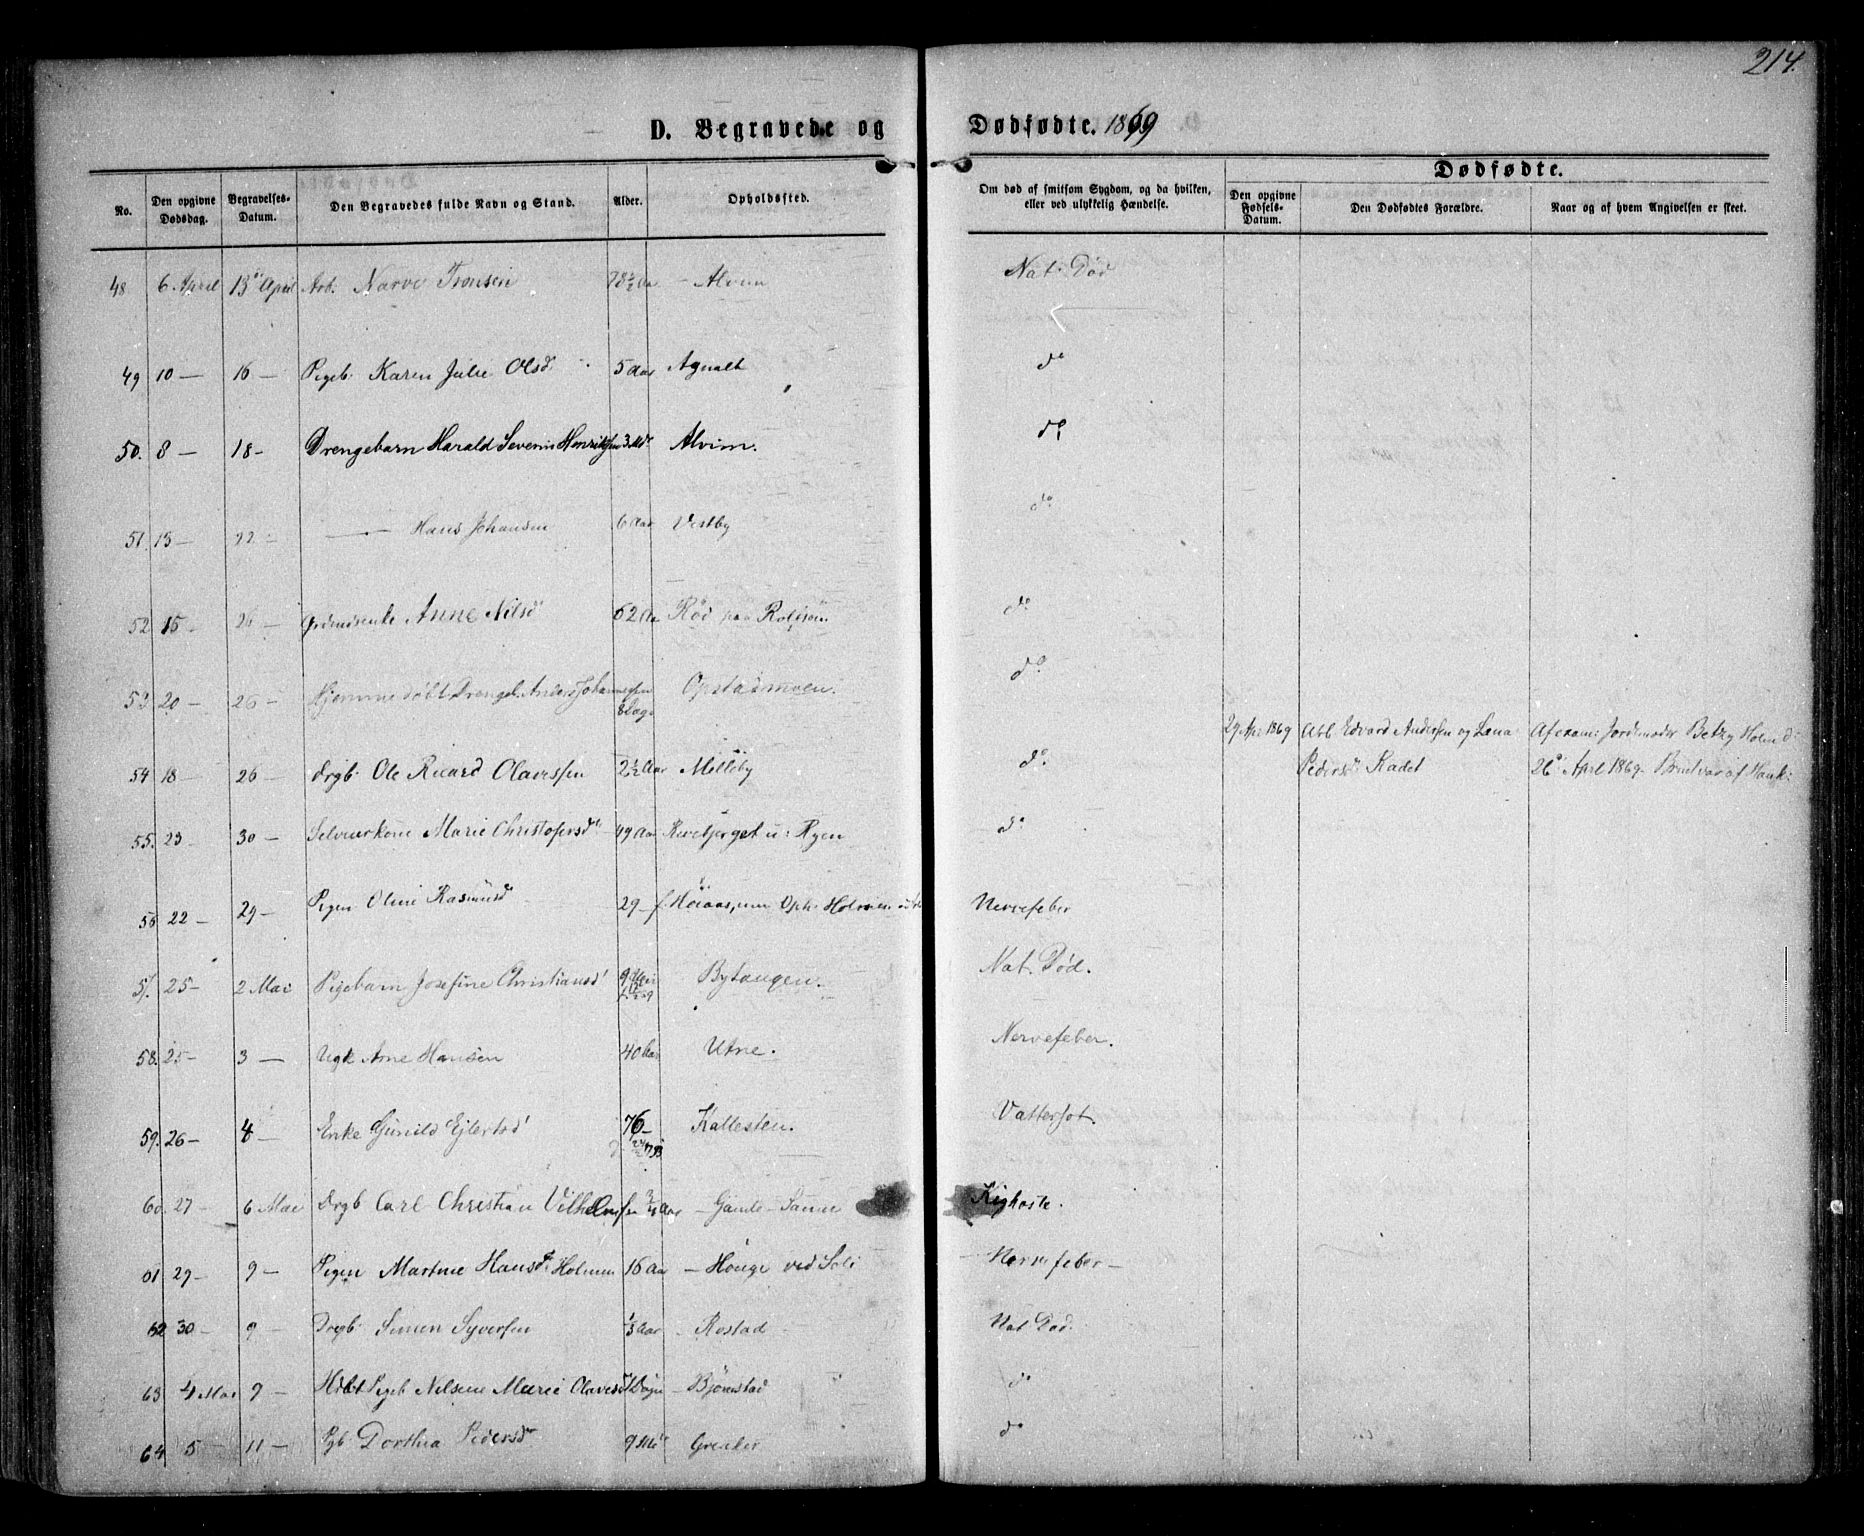 214.
D. Begravede og Dødfødte. 1869
No. Den opgivne Dødsdag. Begravelses-Datum. Den Begravedes fulde Navn og Stand. Alder. Opholdssted. Om død af smitsom Sygdom, og da hvilken, eller ved ulykkelig Hændelse. Dødfødte.
Den opgivne Fødsels-Datum. Den Dødfødtes Forældre. Naar og af hvem Angivelsen er skeet.
48 6 April 13de April Arb. Narve Tronsen 78½ Aar - Alvim Nat. Død
49 10 — 16 — Pigeb. Karen Julie Olsd 5 Aar Agnalt do
50. 8 — 18 - Drengebarn Harald Severin Henriksen 3 Md. Alvim. do
51. 13 — 22 — — Hans Johansen 6 Aar Vestby do
52 15 - 26 - Anne Nilsd 62 Aar Rød paa Rolfsøen do
53 20 — 26 — Hjemmedøbt Drengeb. Anders Johannessen 8 Dage Opstadmoen. do
29 Apr 1869 Arb. Edvard Andersen og Lena Pedersd Kadet Af exam: Jordemoder Betzy Holm d: 26de April 1869.
54 18 — 26 — Drgb. Ole Ricard Olavessen 2½ Aar Melleby do
55. 23 — 30 — Selveierkone Marie Christofersd. 49 Aar Revebjerget u: Ryen do
56 22 — 29 — Pigen Oline Rasmusd 29 - Holmen Nervefeber
57. 25 — 2 Mai Pigebarn Josefine Christiansd Bytangen. Nat. Død.
58. 25 — 3 — Ugk Arne Hansen 40 Aar Utne. Nervefeber.
59. 26 — 4 — Enke Gunild Ejlertsd 76 - Kallesten. Vattersot.
60. 27 — 6 Mai Drgb Carl Christian Vilhelmsen ¾ Aar - Gamle-Sanne Kighoste.
61 29 — 9 — Pigen Martine Hansd. Holmen 16 Aar - Houge ved Soli Nervefeber —
62 30 — 9 — Drgb. Simen Syversen ⅓ Aar - Rostad Nat. Død.
63 4 Mai 9 — Hdbt Pigeb Nilsine Marie Olavesd Døgn - Bjørnstad do
64 5 — 11 — Pgb Dorthea Pedersd 9 Md Greaker do